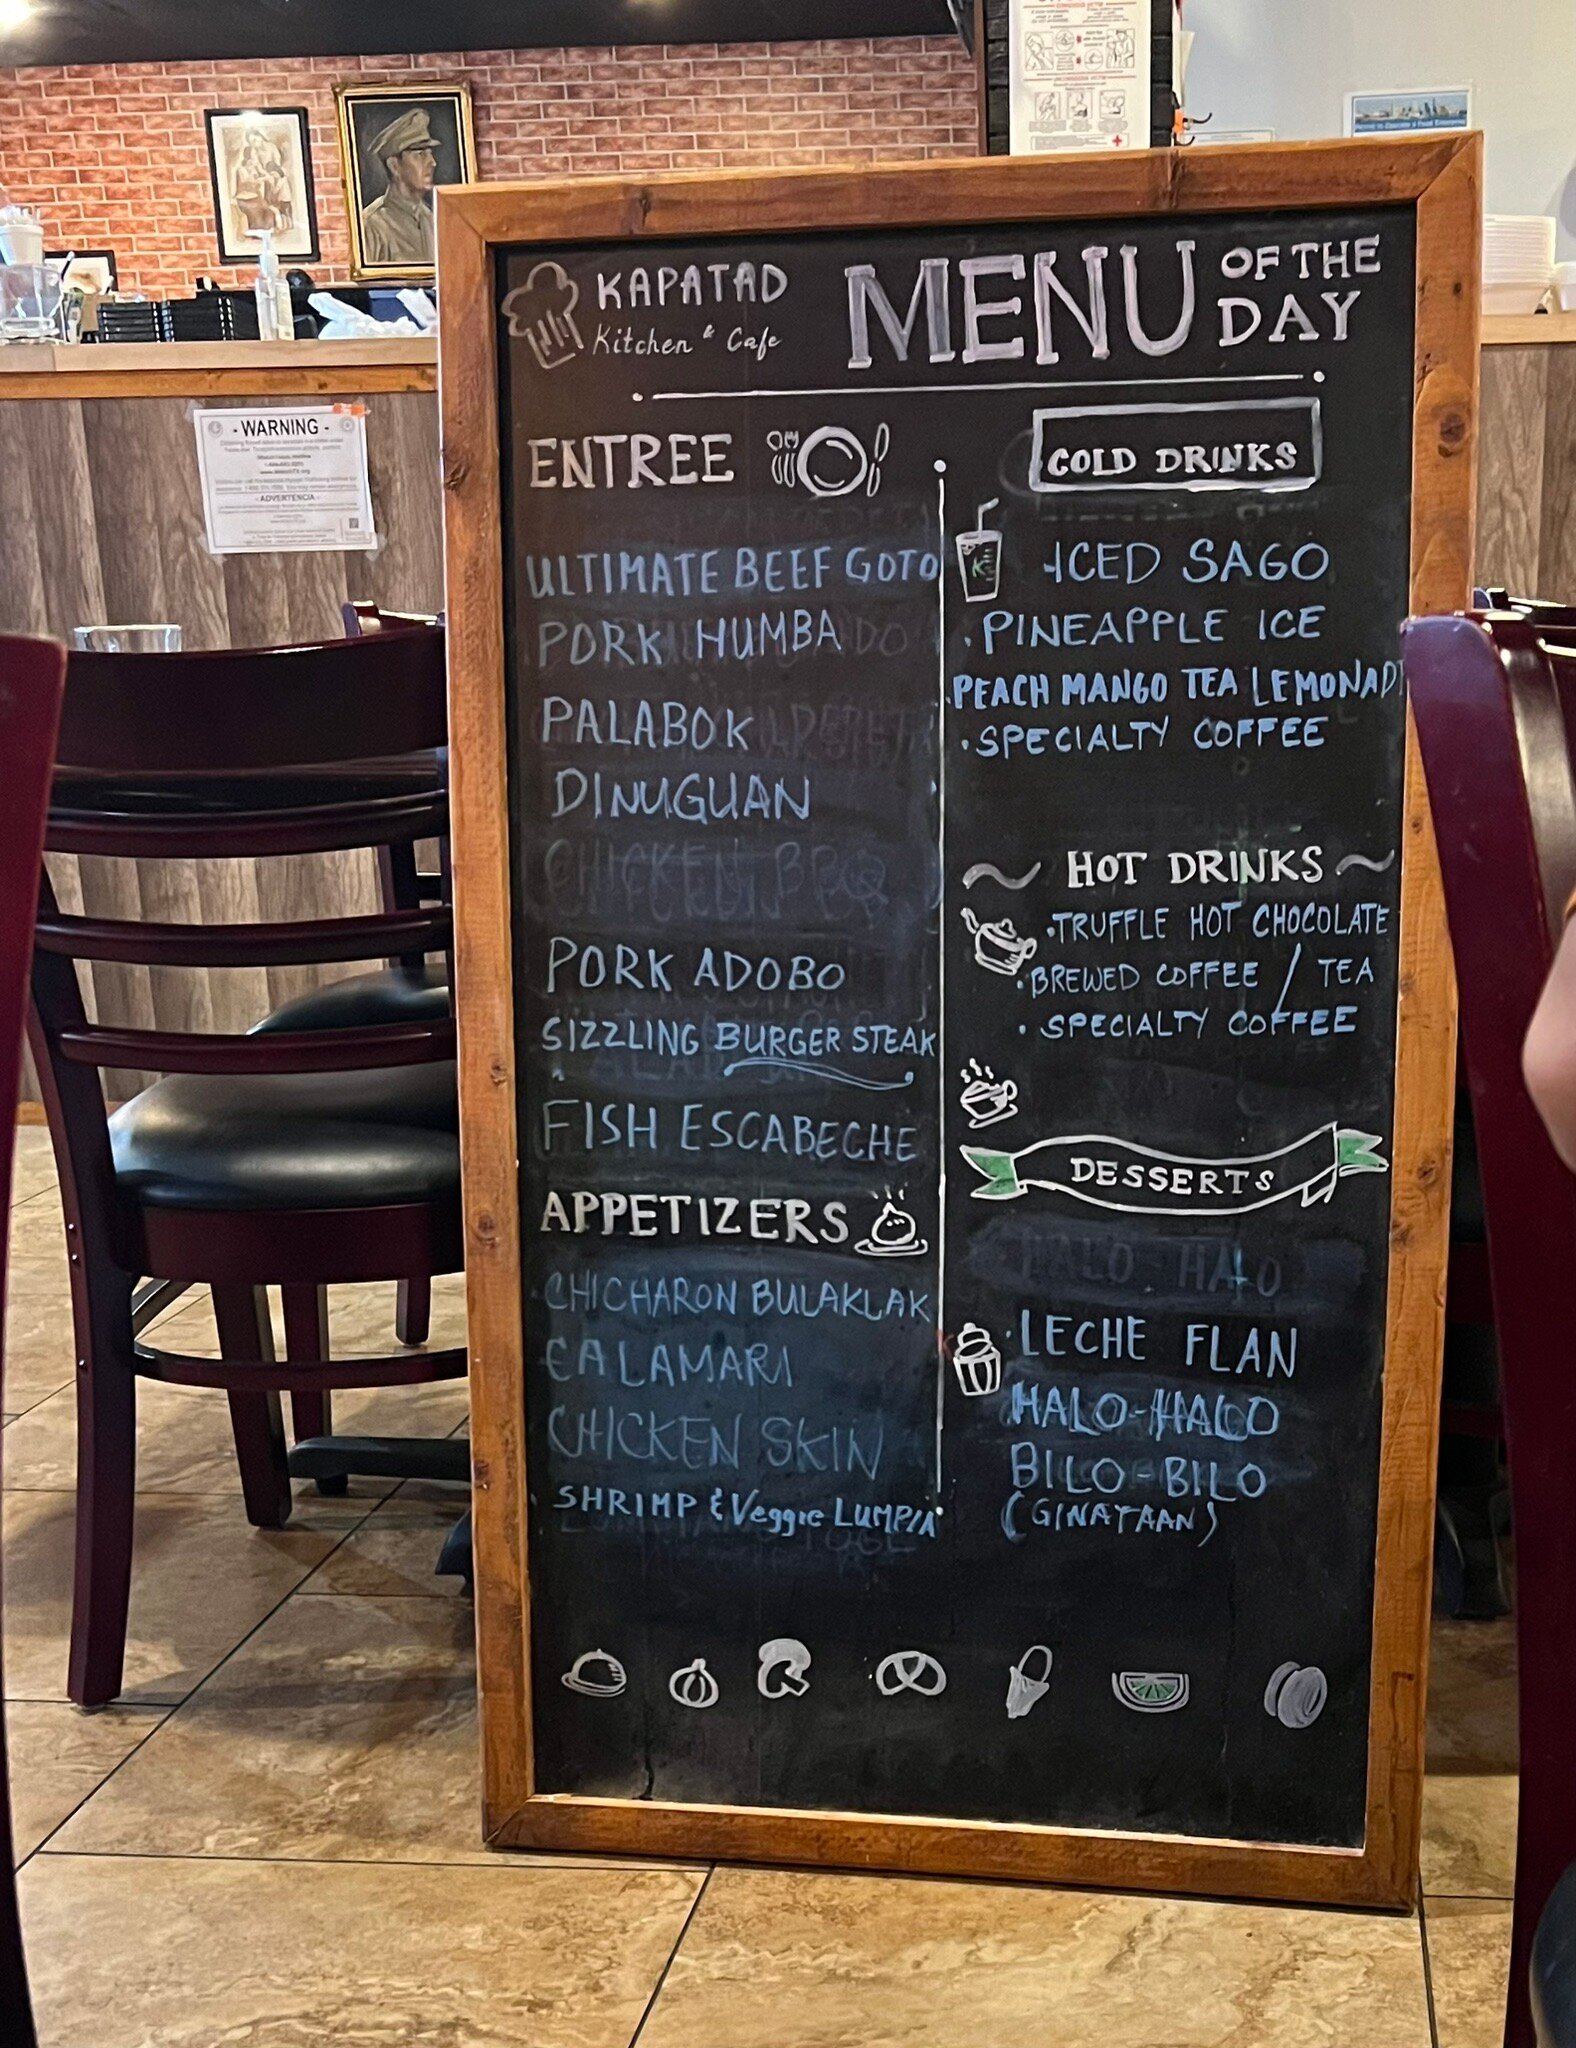 KAPATAD
Kitchen & Cafe
MENU OF THE DAY
ENTREE
ULTIMATE BEEF GOTO
PORK HUMBA
PALABOK
DINUGUAN
CHICKEN BBQ
PORK ADOBO
SIZZLING BURGER STEAK
FISH ESCABECHE
APPETIZERS
CHICHARON BULAKLAK
CALAMARI
CHICKEN SKIN
SHRIMP & Veggie LUMPIA
COLD DRINKS
K
ICED SAGO
· PINEAPPLE ICE
· PEACH MANGO TEA LEMONAD
· SPECIALTY COFFEE
HOT DRINKS
· TRUFFLE HOT CHOCOLATE
· BREWED COFFEE / TEA
· SPECIALTY COFFEE
DESSERTS
HALO-HALO
· LECHE FLAN
HALO-HALO
BILO-BILO
(GINATAAN)
- WARNING -
- ADVERTENCIA -